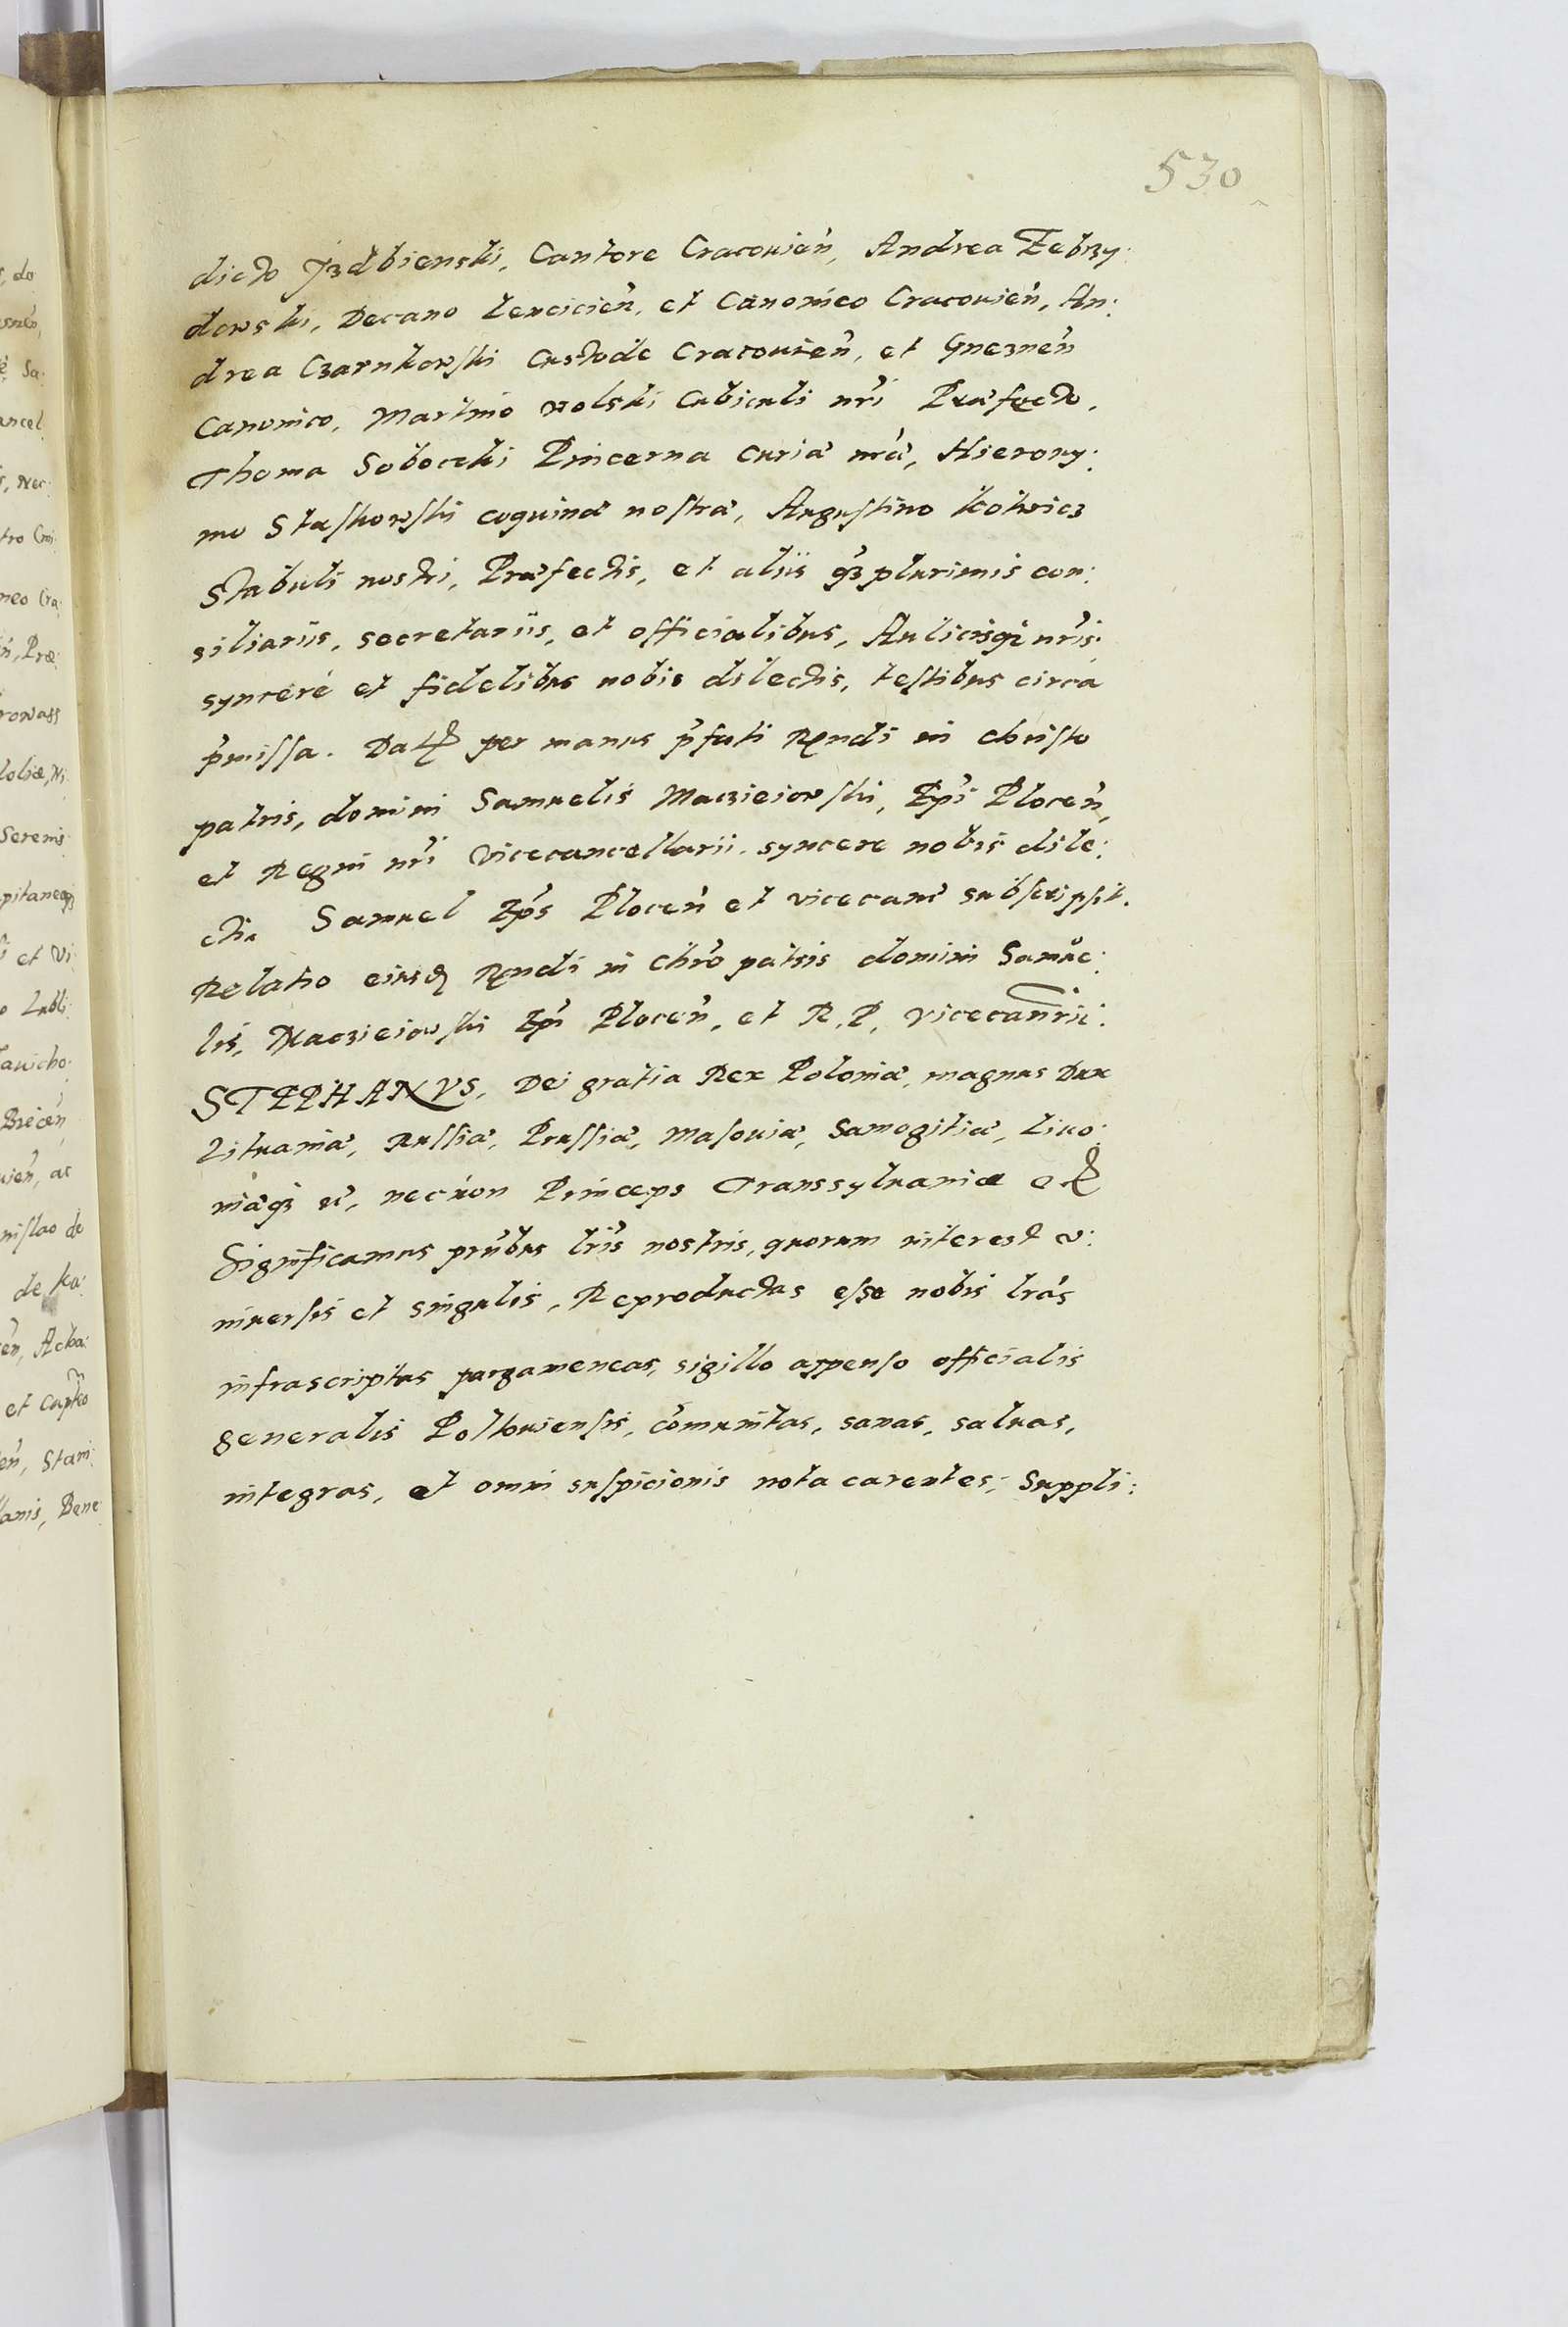 530
dicto Jzdbienski, Cantore Cracouień, Andrea Zebrzy:
dowski, Decano Lencicień, et Canonico Cracouień, An:
drea Czarnkowski Custode Cracouień, et Gnezneń
Canonico, Martino Wolski Cubiculi nrĩ Præfecto,
Thoma Sobocki Pincerna Curiæ nræ̃, Hierony:
mo Staskowski coquinæ nostræ, Augustino Kotwicz
Stabuli nostri, Præfectis, et aliis qz plurimis con:
siliariis, secretariis, et officialibus, Aulicisqz nrĩs:
syncerè et fidelibus nobis dilectis, testibus circa
p̃missa. Dat per manus p̃fati Rñdi in Christo
patris, domini Samuelis Maczieiowski, Ep̃i Ploceñ,
et Regni nrĩ Vicecancellarii. syncere nobis dile:
cti. Samuel Ep̃s Ploceñ et vicecanc̃ subscripsit.
Relatio eiusd Rñdi in Chrõ patris domini Samue:
lis, Maczieiowski Ep̃i Ploceñ, et R. P. Vicecanr̃ii.
STEPHANVS, Dei gratia Rex Poloniæ, magnus Dux
Lituaniæ, Russiæ, Prussiæ, Masouiæ, Samogitiæ, Liuo:
niæqz etc̃, necnon Princeps Transsyluaniæ etc
Significamus prñtibus lrĩs nostris, quorum interest v:
niuersis et singulis, Reproductas esse nobis lrãs
infrascriptas pargameneas, sigillo appenso officialis
generalis Poltouiensis, cõmunitas, sanas, saluas,
integras, et omni suspicionis nota carentes; Suppli: